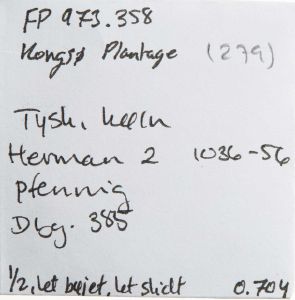 FP 973.358
Kongsø Plantage (279)
Tysk, Kceln
Herman 2 1036-56
pfennig
Dbg. 385
1/2, let bøjet, let slidt 0.704